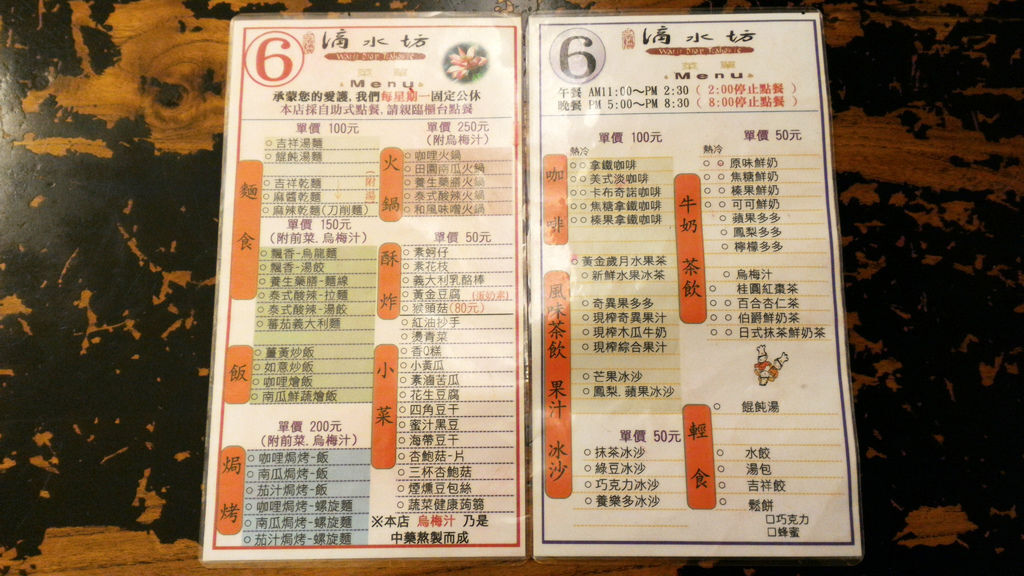 6
滴水坊
Water Drop Teahouse
菜單
Menu
承蒙您的愛護,我們每星期一固定公休
本店採自助式點餐,請親臨櫃台點餐
麵食
單價 100元
吉祥湯麵
餛飩湯麵
吉祥乾麵
麻醬乾麵
麻辣乾麵(刀削麵)
單價 150元
(附前菜.烏梅汁)
飄香-烏龍麵
飄香-湯餃
養生藥膳-麵線
泰式酸辣-拉麵
泰式酸辣-湯餃
蕃茄義大利麵
飯
薑黃炒飯
如意炒飯
咖哩燴飯
南瓜鮮蔬燴飯
單價 200元
(附前菜.烏梅汁)
焗烤
咖哩焗烤-飯
南瓜焗烤-飯
茄汁焗烤-飯
咖哩焗烤-螺旋麵
南瓜焗烤-螺旋麵
茄汁焗烤-螺旋麵
單價 250元
(附烏梅汁)
火鍋
咖哩火鍋
田園南瓜火鍋
養生藥膳火鍋
泰式酸辣火鍋
和風味噌火鍋
單價 50元
酥炸
素蚵仔
素花枝
義大利乳酪棒
黃金豆腐 (蛋奶素)
猴頭菇(80元)
小菜
紅油抄手
燙青菜
香Q糕
小黃瓜
素滷苦瓜
花生豆腐
四角豆干
蜜汁黑豆
海帶豆干
杏鮑菇-片
三杯杏鮑菇
煙燻豆包絲
蔬菜健康蒟蒻
※本店 烏梅汁 乃是
中藥熬製而成
6
滴水坊
Water Drop Teahouse
菜單
Menu
午餐 AM11:00~PM 2:30 ( 2:00停止點餐 )
晚餐 PM 5:00~PM 8:30 ( 8:00停止點餐 )
單價 100元
熱冷
咖啡
拿鐵咖啡
美式淡咖啡
卡布奇諾咖啡
焦糖拿鐵咖啡
榛果拿鐵咖啡
風味茶飲 果汁 冰沙
黃金歲月水果茶
新鮮水果冰茶
奇異果多多
現榨奇異果汁
現榨木瓜牛奶
現榨綜合果汁
芒果冰沙
鳳梨.蘋果冰沙
單價 50元
抹茶冰沙
綠豆冰沙
巧克力冰沙
養樂多冰沙
單價 50元
熱冷
牛奶 茶飲
原味鮮奶
焦糖鮮奶
榛果鮮奶
可可鮮奶
蘋果多多
鳳梨多多
檸檬多多
烏梅汁
桂圓紅棗茶
百合杏仁茶
伯爵鮮奶茶
日式抹茶鮮奶茶
輕食
餛飩湯
水餃
湯包
吉祥餃
鬆餅
□巧克力
□蜂蜜